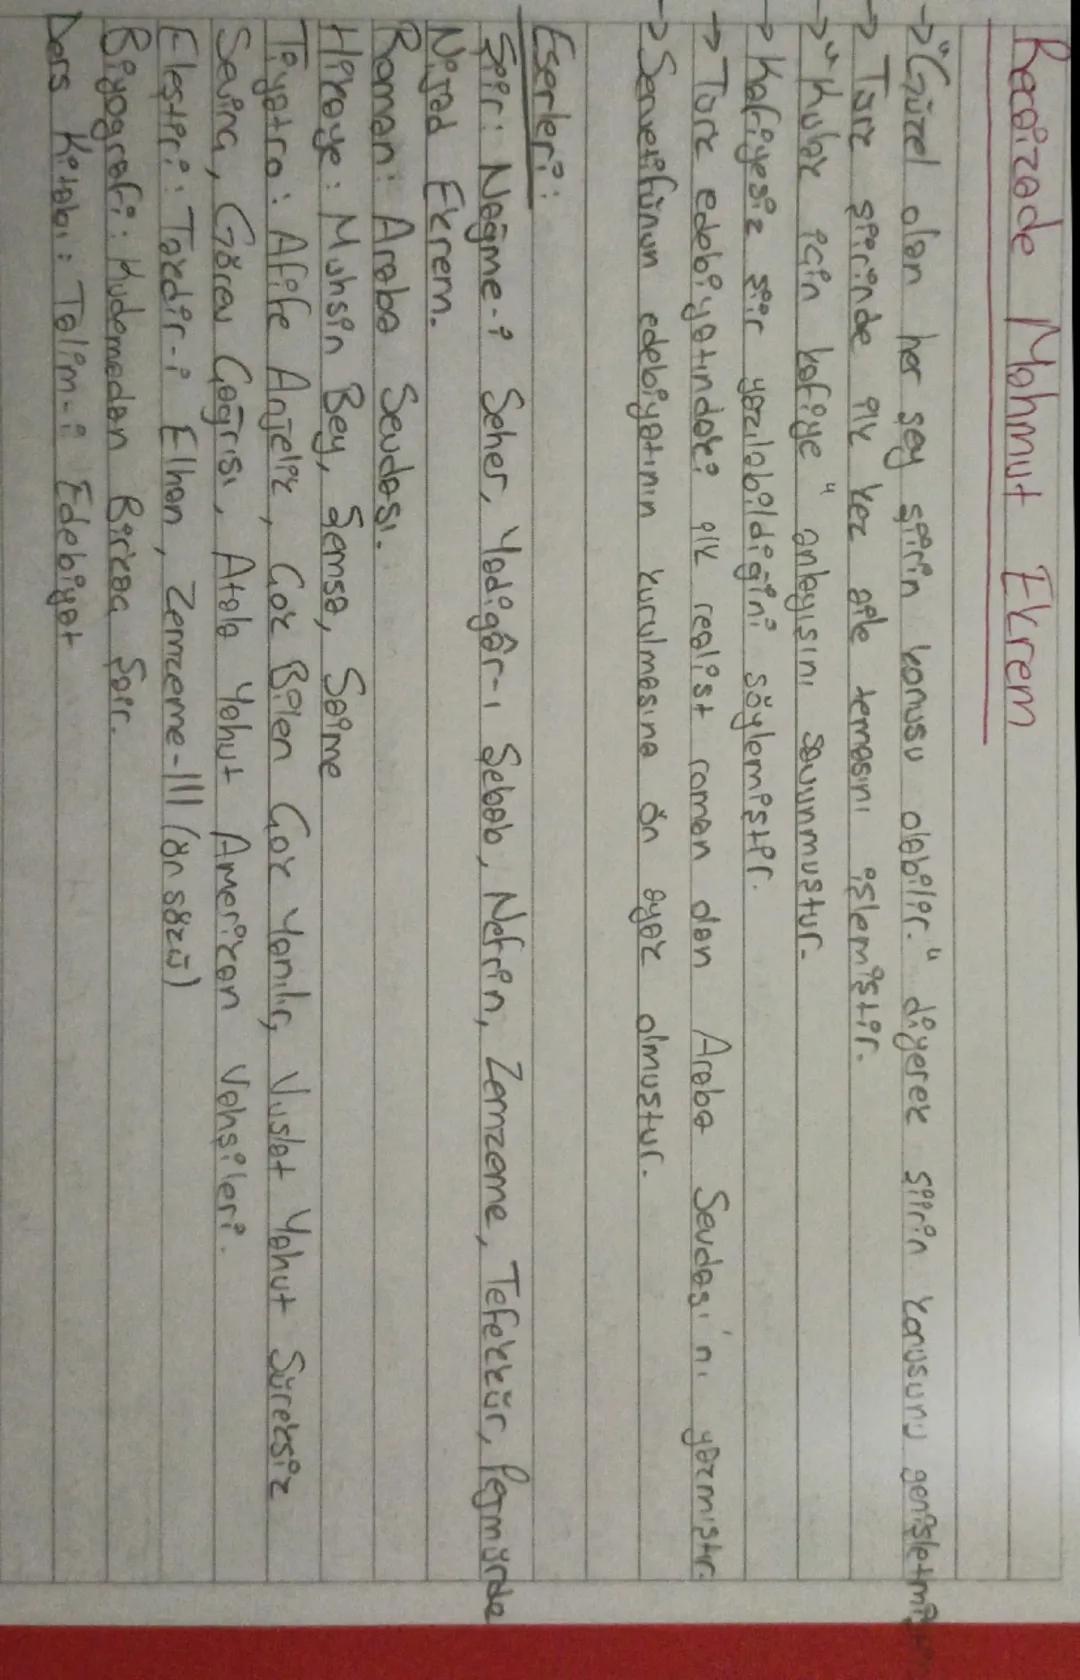 Recaizade Mahmut Ekrem
→ "Güzel olan her şey şiirin konusu olabilir." diyerek şiirin konusunu genişletmiş
→ Türk şiirinde ilk kez aile temasını işlemiştir.
→ "Kulak için kafiye" anlayışını savunmuştur.
→ Kafiyesiz şiir yazılabildiğini söylemiştir.
→ Türk edebiyatındaki ilk realist roman olan Araba Sevdası'nı yazmıştır.
→ Servetifünun edebiyatının kurulmasına ön ayak olmuştur.
Eserleri:
Şiir: Nağme-i Seher, Yadigâr-ı Şebab, Nefrin, Zemzeme, Tefekkür, Pejmürde
Nijad Ekrem.
Roman: Araba Sevdası.
Hikaye: Muhsin Bey, Şemsa, Saime
Tiyatro: Afife Anjelik, Çok Bilen Çok Yanılır, Vuslat Yahut Süreksiz
Sevinç, Gören Çağrısı, Atala Yahut Amerikan Vahşileri.
Eleştiri: Takdir-i Elhan, Zemzeme-III (ön sözü)
Biyografi: Kudemadan Birkaç Şair.
Ders Kitabı: Talim-i Edebiyat